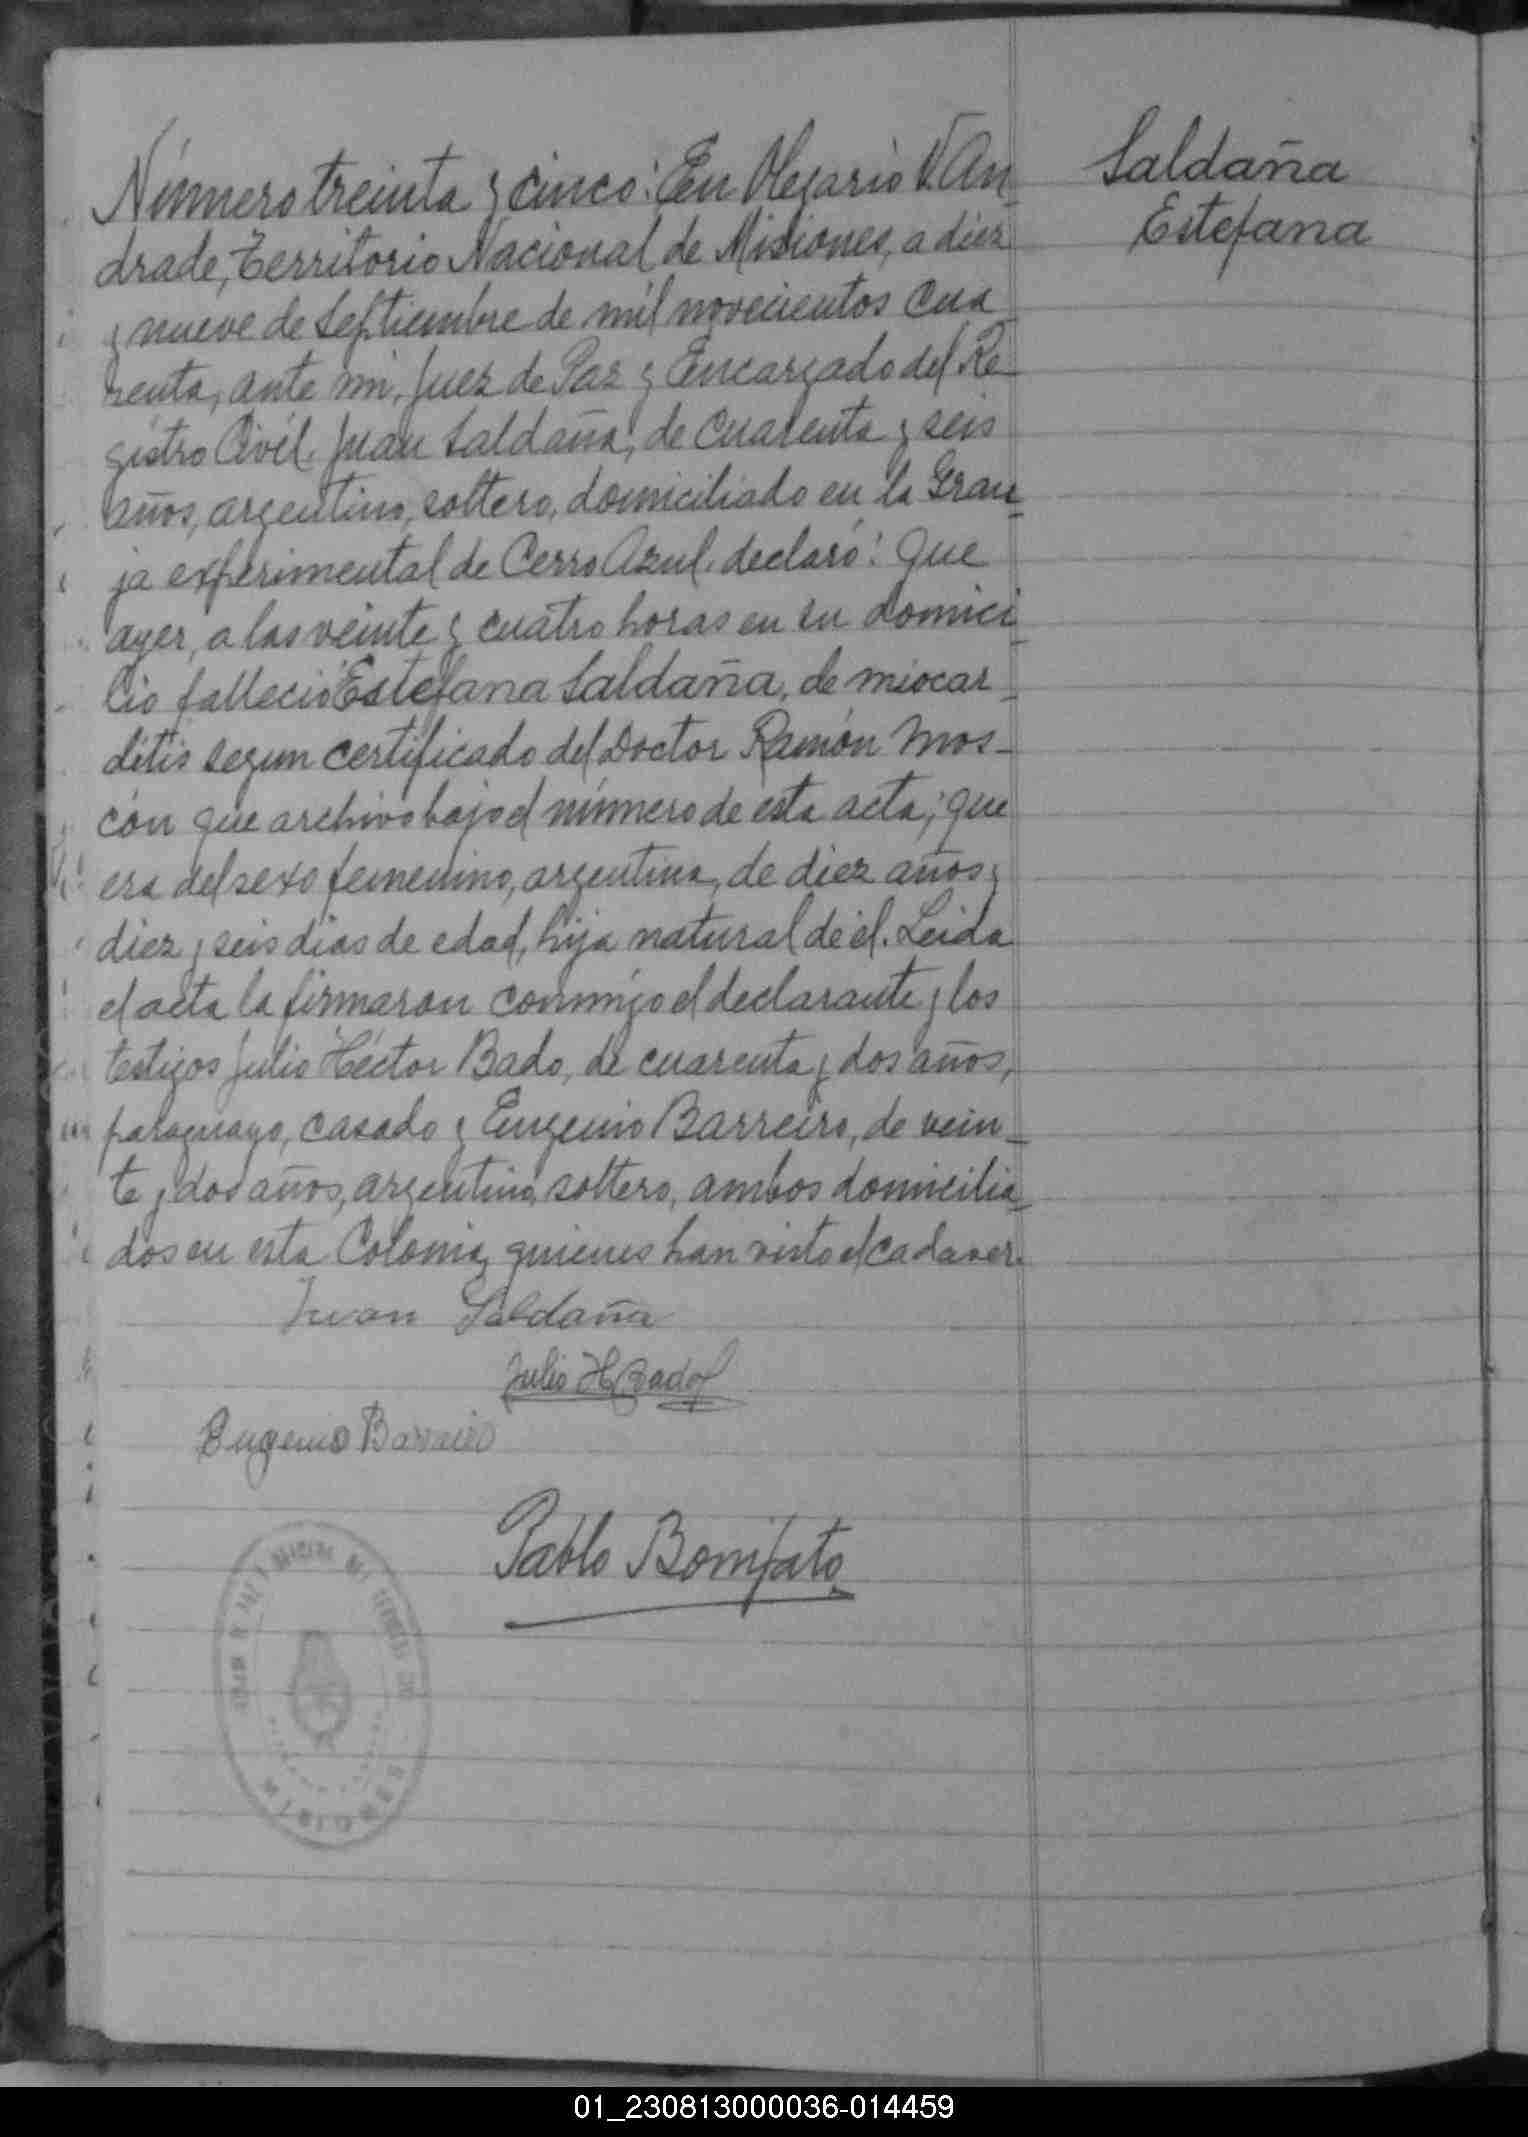 Número treinta y cinco: En Olegario V. An-
drade, Territorio Nacional de Misiones, a diez
y nueve de Septiembre de mil novecientos cua
renta, ante mi, Juez de Paz y Encargado del Re-
gistro Civil. Juan Saldaña, de cuarenta y seis
años, argentino, soltero, domiciliado en la Gran-
ja experimental de Cerro Azul. declaró: Que
ayer, a las veinte y cuatro horas en su domici-
lio falleció Estefana Saldaña, de miocar-
ditis segun certificado del Doctor Ramón Mos-
cón que archivo bajo el número de esta acta; que
era del sexo femenino, argentina, de diez años y
diez y seis dias de edad, hija natural de él. Leida
el acta la firmaron conmigo el declarante y los
testigos Julio Héctor Bado, de cuarenta y dos años,
paraguayo, casado y Eugenio Barreiro, de vein-
te y dos años, argentino, soltero, ambos domicilia-
dos en esta Colonia, quienes han visto el cadaver.
Juan Saldaña
Julio H Bado
Eugenio Barreiro
Pablo Bonifato
MISIONES
Saldaña
Estefana
01_230813000036-014459